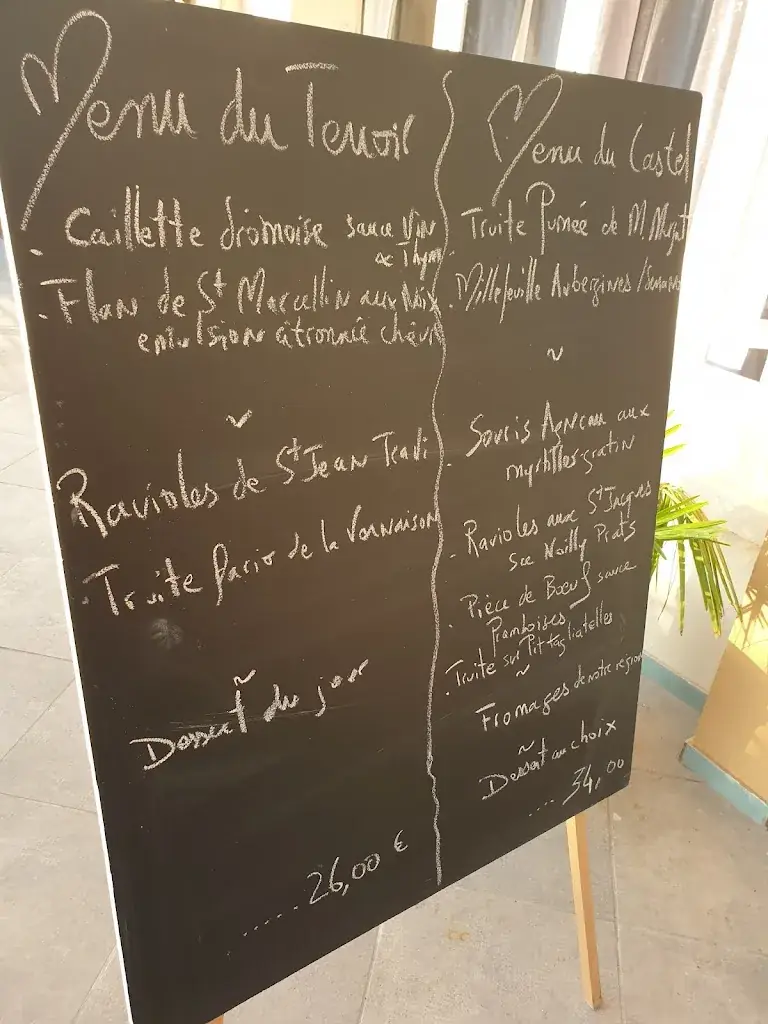 Menu du Terroir
Caillette drômoise sauce Vin
& Thym
Flan de St Marcellin aux Noix
emulsion citronnée chèvre
Ravioles de St Jean
Truite de la Vernaison
Dessert du jour
26,00 €
Menu du Castel
Truite Fumée de M.
Millefeuille Aubergines /
Souris Agneau aux
myrtilles gratin
Ravioles aux St Jacques
Sce Noilly Prats
Pièce de Boeuf sauce
Framboises
Truite sur
Fromages de notre région
Dessert au choix
.... 34,00